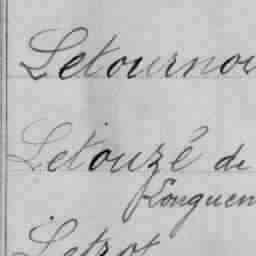 Letournou
Letouzé de
Longuem
Letrot